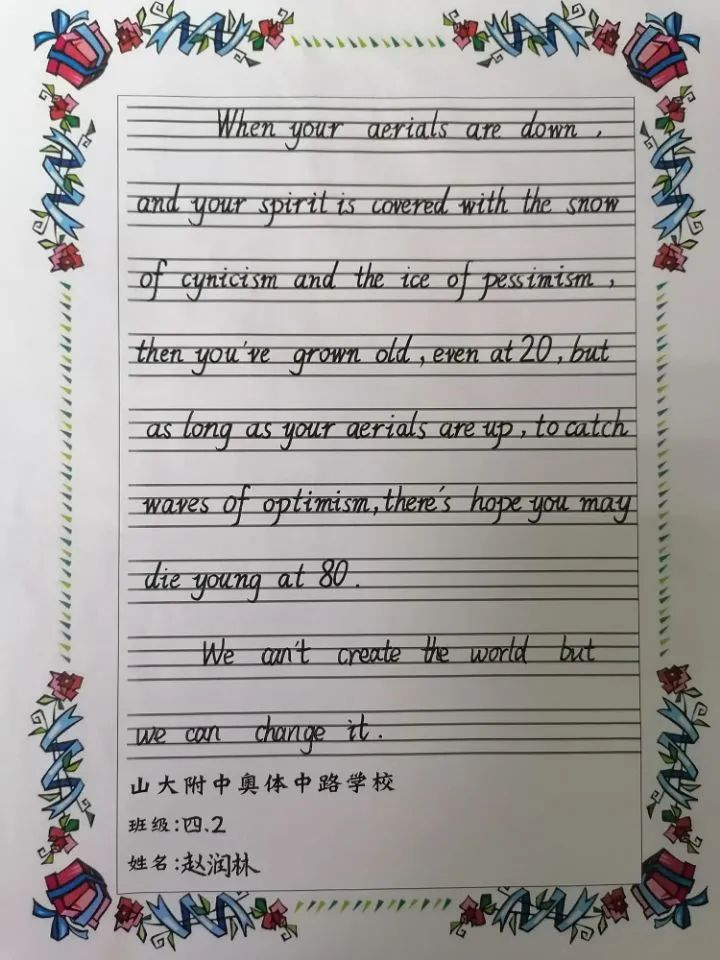 When your aerials are down ,
and your spirit is covered with the snow
of cynicism and the ice of pessimism ,
then you've grown old , even at 20 , but
as long as your aerials are up , to catch
waves of optimism, there's hope you may
die young at 80 .
We can't create the world but
we can change it .
山大附中奥体中路学校
班级:四.2
姓名:赵润林